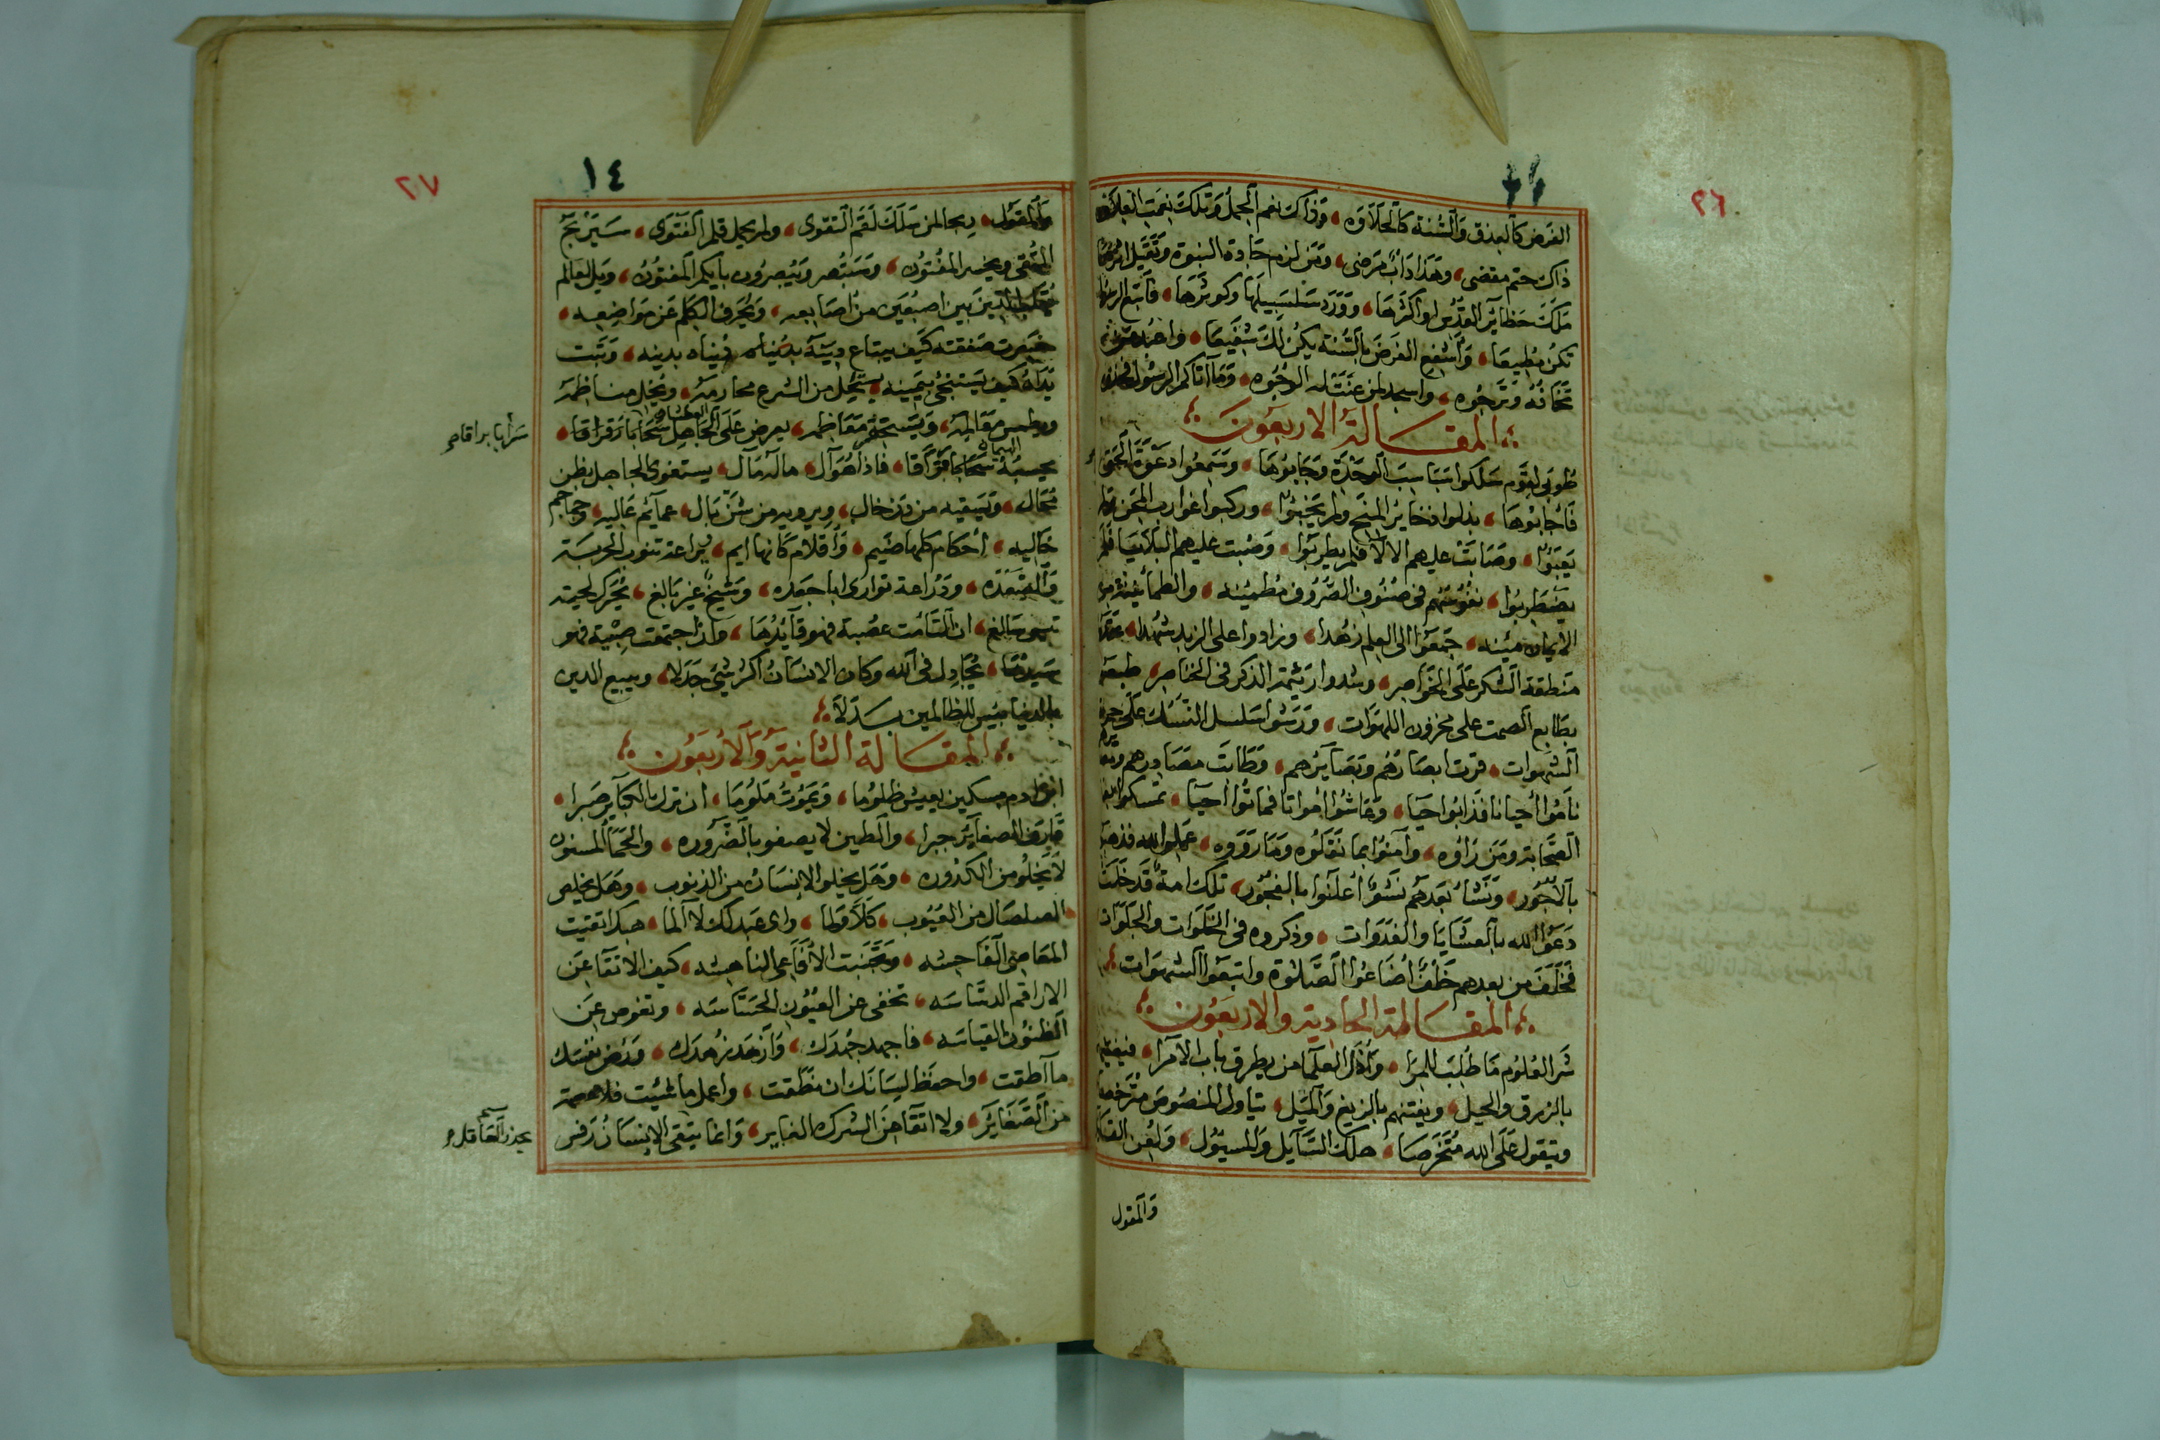 ٢٦
الفرض كالعذق والسنة كالحلاوه وذاك نعم الحمل وتلك نعمت العلاوه
ذاك حتم مقضي وهذا داب مرضي ومن لزم جادة النبوة وتقيل
ملك حظائر القدس او اكثرها وورد سلسبيلها وكوثرها فاتبع الرسول
تكن مطيعا واشفع الفرض بالسنة يكن لك شفيعا واخز هوى
تخافه وترجوه واسجد لمن عنت له الوجوه وما آتاكم الرسول فخذوه
المقالة الاربعون
طوبى لقوم سلكوا سباسب الوحدة وجابوها وسمعوا دعوة الحق
فأجابوها بذلوا ذخاير المنح ولم يخيبوا وركبوا غوارب المحن ولم
يتعبوا وصابت عليهم الالآء فلم يطربوا وصبت عليهم البلايا فلم
يضطربوا نفوسهم في صنوف الصروف مطمئنه والطمأنينة من
الايمان مئنه جمعوا الى العلم زهدا وزادوا على الزبد شهدا عقدوا
منطقة الشكر على الخواصر وشدوا رتيمة الذكر في الخناصر طبعوا
بطابع الصمت على مخزون اللهوات ورشوا سلسل النسك على جمرة
الشهوات قرت ابصارهم وبصايرهم وطابت مصادرهم
ناموا أحيانا فذابوا حيا وعاشوا امواتا فماتوا احيا تمسكوا
الصحابة ومن رأوه وآمنوا بما نقلوه وما رووه عملوا لله فذهبوا
بالاجور ونشأ بعدهم نشؤ أعلنوا بالفجور تلك امة قد خلت
دعوا الله بالعشايا والغدوات وذكروه في الخلوات والجلوات
فخلف من بعدهم خلف أضاعوا الصلوة واتبعوا الشهوات
المقالة الحادية والاربعون
شر العلوم ما طلب للمرا وأذل العلما من يطرق باب الامرا فيفتيهم
بالزرق والحيل ويفتنهم بالزيغ والميل يتاول المنصوص مترخصا
ويتقول على الله متخرصا هلك السآيل والمسئول ولعن القايل
والمقول
٢٧
١٤
والمقول ريحا لمن سلك لقم التقوى ولم يحمل قلم الفتوى سيربح
المتقي ويخسر المفتون وستبصر ويبصرون بأيكم المفتون ويل لعالم
يقلب الدين بين اصبعين من أصابعه ويحرف الكلم عن مواضعه
خسرت صفقته كيف يبتاع دنياه بدينه وتبت
يداه كيف يستنجي بيمينه يستحل من الشرع محارمه ويخل مناظمه
ويطمس معالمه ويستحقر معاظمه يعرض على الجاهل سحابا رقراقا
سرابا براقا
يحسبه سحابا رقراقا فاذا هو آل ماله مآل يستغوى الجاهل بظن
محال ويسقيه من دن خال ويرويه من شن بال عمائم عاليه وجماجم
خاليه احكام كلها ضيم وأقلام كانها ايم يراعة تنوب الحربة
والصعده ودراعة توارى ابا جعده وشيخ غير بالغ يحرك لحيته
تيس سالغ ان التأمت عصبة فهو قآيدها وان اجتمعت صبية فهو
سيدها يجادل في الله وكان الانسان اكثر شيء جدلا ويبيع الدين
بالدنيا بئس للظالمين بدلا
المقالة الثانية والاربعون
ابن ادم مسكين يعيش ظلوما ويموت ملوما ان ترك الكبآير صبرا
قارف الصغآير جبرا والطين لا يصفو بالضروره والحمأ المسنون
لا يخلو من الكدوره وهل يخلو الانسان من الذنوب وهل يخلص
الصلصال من العيوب كلا ولما واي عبد لك لا ألما هبك اتقيت
المعاصي الفاحشه وتجنبت الأفاعي الناهشه كيف الاتقا عن
الاراقم الدساسه تخفى عن العيون الحساسه وتغوص عن
الظنون القياسه فاجهد جهدك وازهد زهدك ورض نفسك
ما آطقت واحفظ لسانك ان نطقت واعمل ما شئت فلا عصمة
من الصغآير ولا اتقآ من الشرك الغاير وانما يتقي الانسان